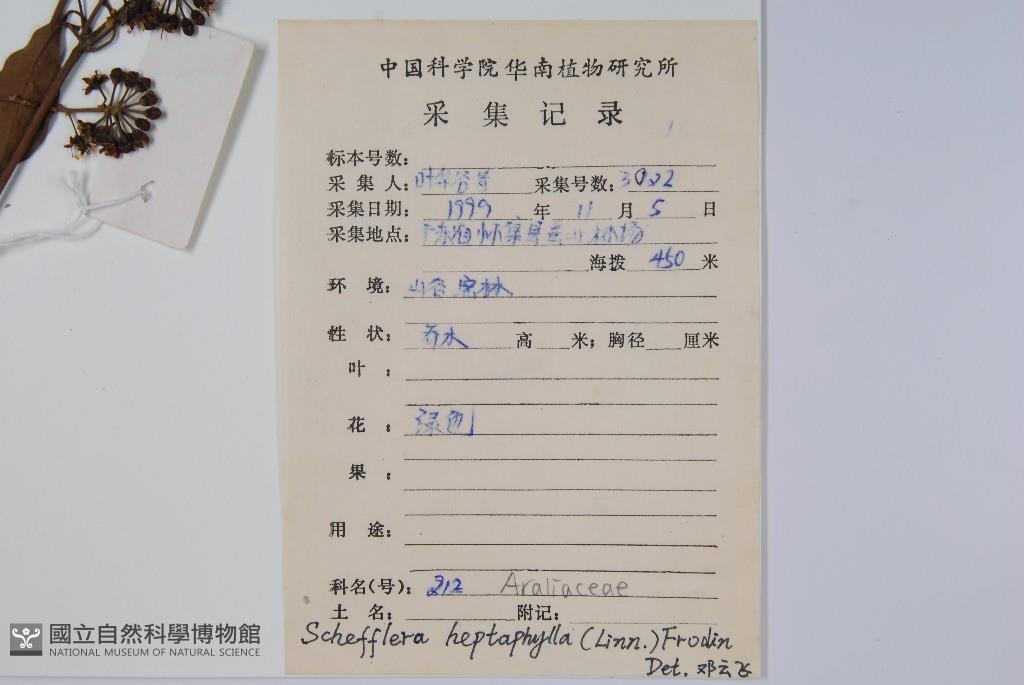 中国科学院华南植物研究所
采集记录
标本号数：
采集人：叶华谷等 采集号数：3022
采集日期：1999年11月5日
采集地点：广东省怀集县 山林场
海拨 450 米
环境：山谷密林
性状：乔木 高 米；胸径 厘米
叶：
花：绿色
果：
用途：
科名(号)：212 Araliaceae
土名： 附记：
Schefflera heptaphylla (Linn.) Frodin
Det. 邓云飞
國立自然科學博物館
NATIONAL MUSEUM OF NATURAL SCIENCE